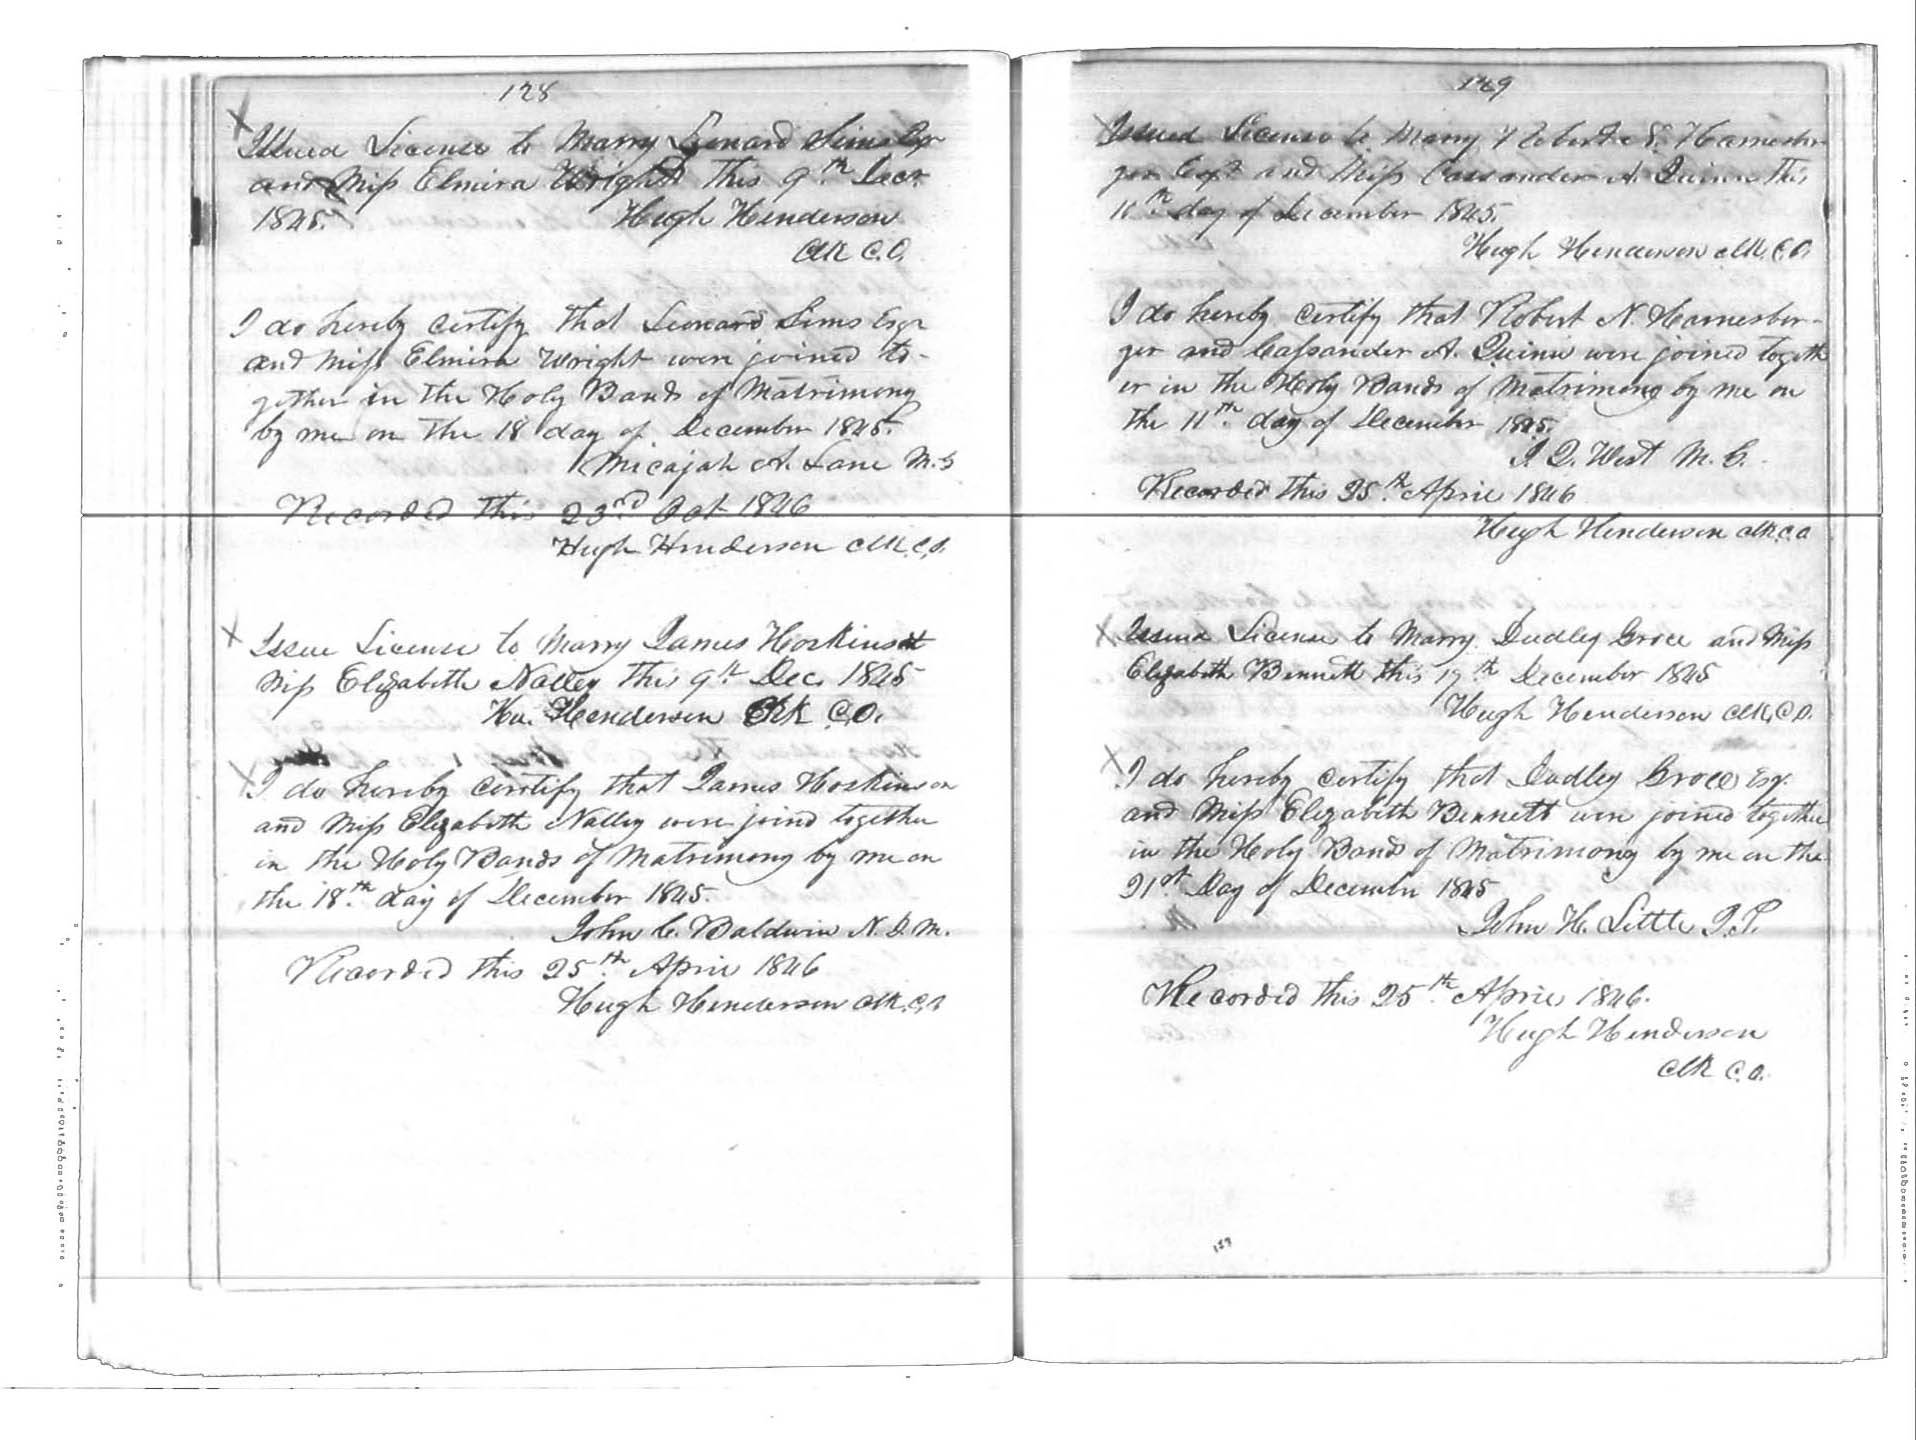 128
X
Issued License to Marry Leonard Sims Esqr
and Miss Elmira Wright This 9th Decr
1845. Hugh Henderson
Clk C.O.
I do hereby certify that Leonard Sims Esqr
and Miss Elmira Wright were joined to-
gether in the Holy Bands of Matrimony
by me on the 18 day of December 1845.
Micajah A. Lane M.G
Recorded this 23rd Oct 1846
Hugh Henderson Clk.C,O.
X Issue License to Marry James Hoskins
Miss Elizabeth Nalley this 9th Dec. 1845
Hu. Henderson Clk C,O.
X I do hereby certify that James Hoskinson
and Miss Elizabeth Nalley were joind together
in the Holy Bands of Matrimony by me on
the 18th day of December 1845.
John C. Baldwin N.D.M.
Recorded this 25th April 1846
Hugh Henderson Clk.C,O
129
X Issued License to Marry Robert N. Harnesber
ger Esqr and Miss Cassander A. Quinn this
11th day of December 1845.
Hugh Henderson Clk.C,O.
I do hereby certify that Robert N. Harnesber-
ger and Cassander A. Quinn were joined togeth
er in the Holy Bands of Matrimony by me on
the 11th day of December 1845.
J. Q. West M.G.
Recorded this 25th April 1846
Hugh Henderson Clk.C.O
X Issued License to Marry Dudley Groce and Miss
Elizabeth Bennett this 17th December 1845
Hugh Henderson Clk,C.O.
X I do hereby certify that Dudley Groce Esqr.
and Miss Elizabeth Bennett were joined together
in the Holy Bands of Matrimony by me on the
21st Day of December 1845
John H. Little J.P.
Recorded this 25th April 1846.
Hugh Henderson
Clk C.O.